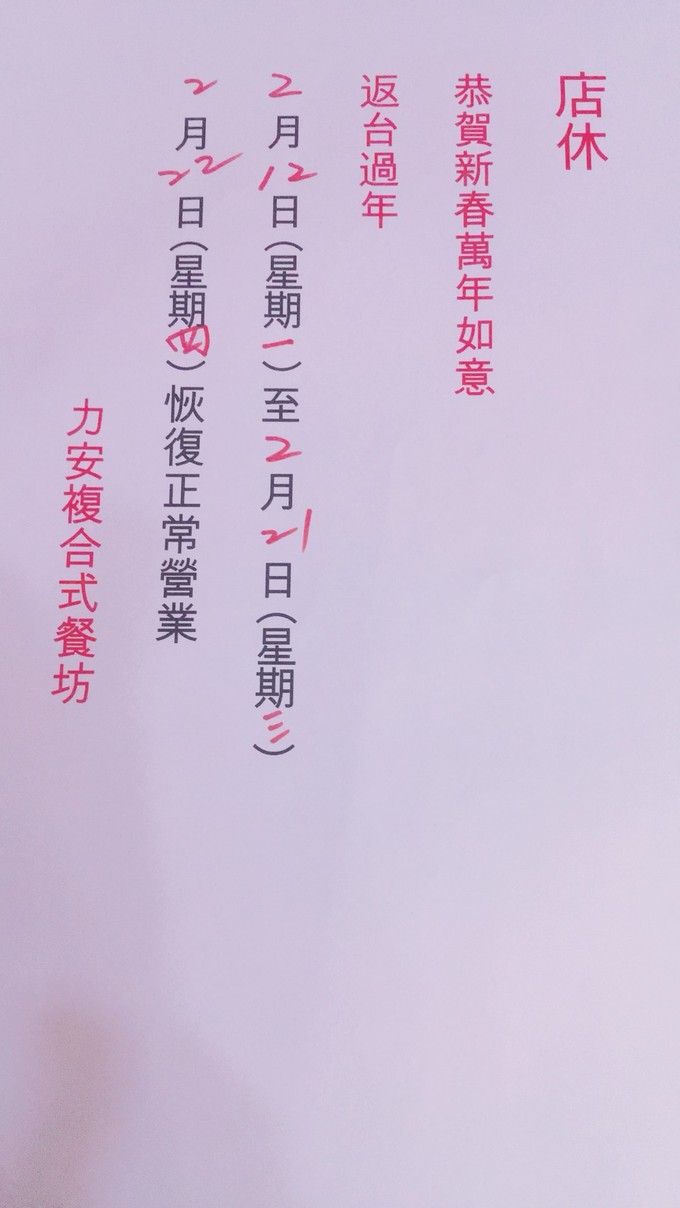 店休
恭賀新春萬年如意
返台過年
2月12日(星期一)至2月21日(星期三)
2月22日(星期四)恢復正常營業
力安複合式餐坊